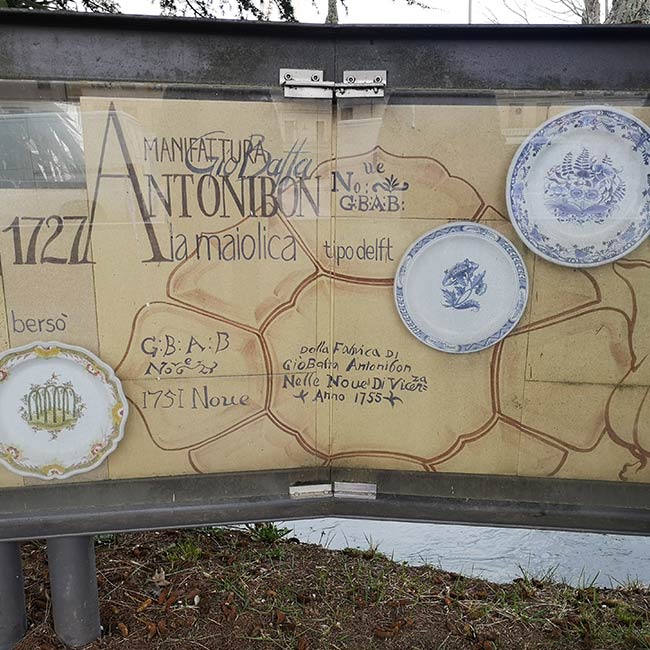 1727
MANIFATTURA
GioBatta
ANTONIBON
la maiolica
N.ve
No:
G:B:A:B:
tipo delft
bersò
G:B:A:B
Noe
1751 Noue
Dolla Fabrica Di
GioBatta Antonibon
Nelle Noue Di Vicenza
Anno 1755